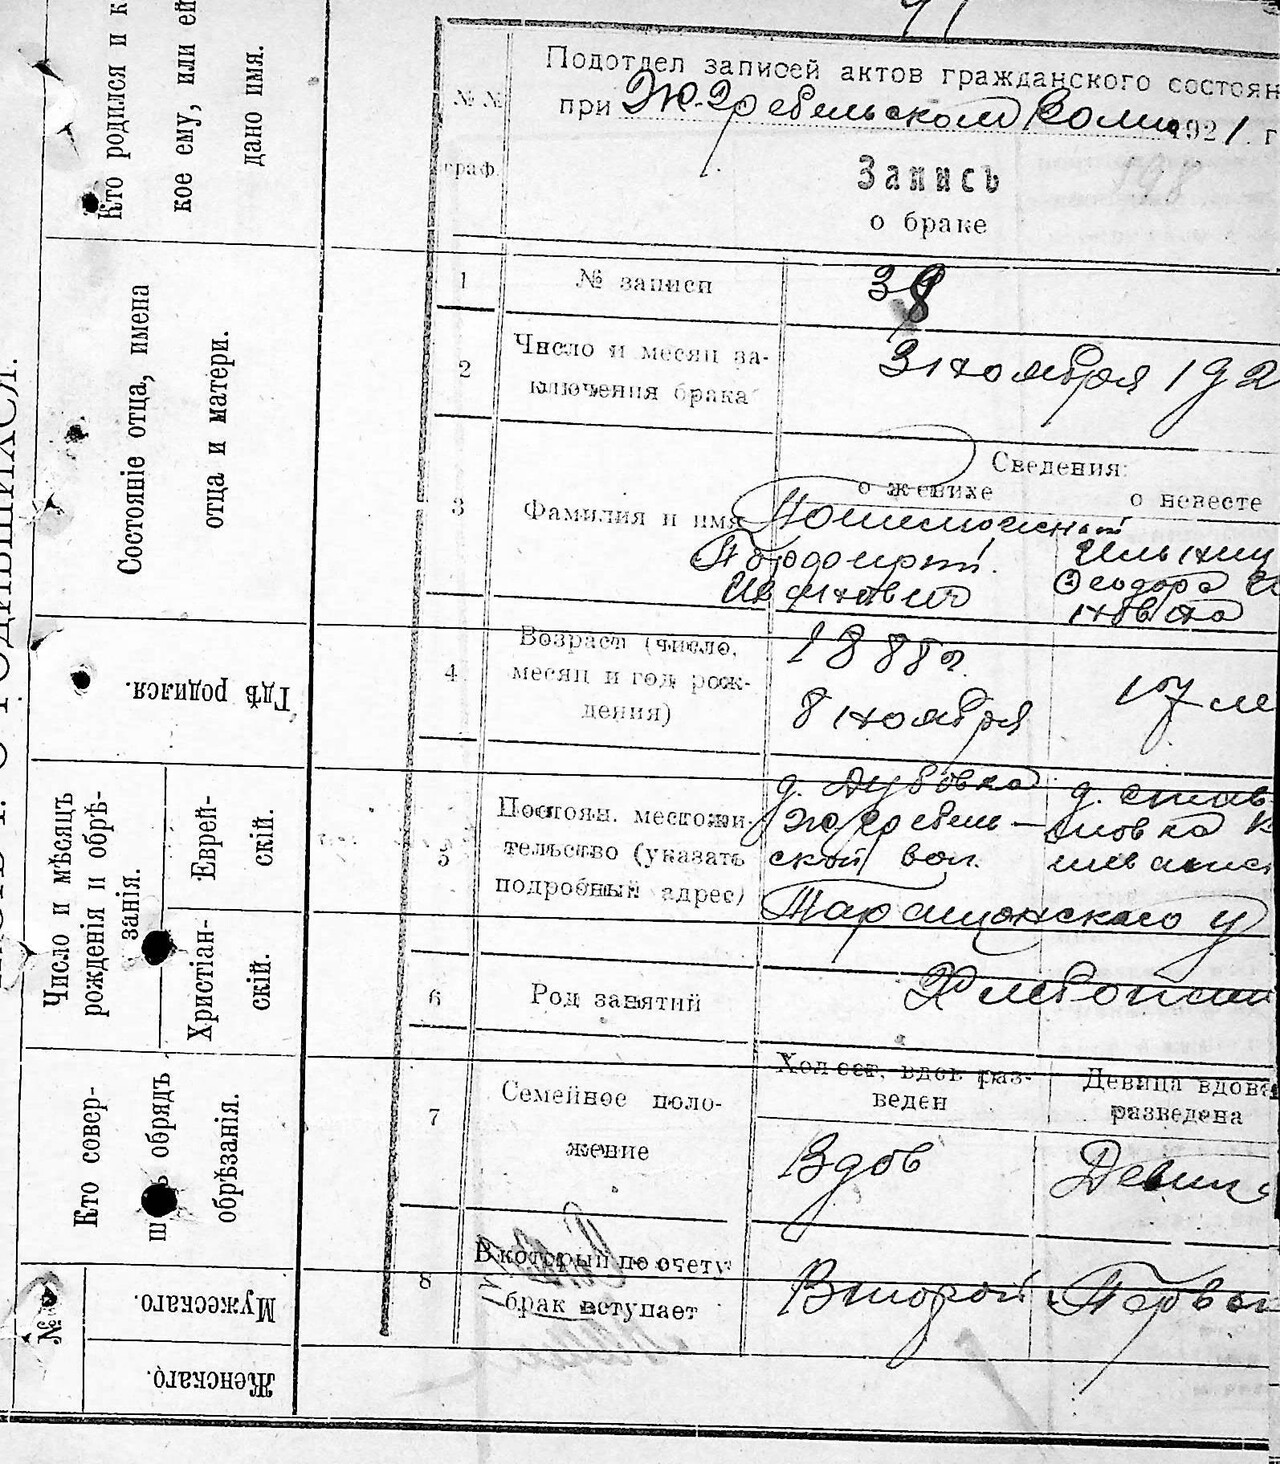 Кто родился и к
кое ему, или ей
дано имя.
Состояніе отца, имена
отца и матери.
Гдѣ родился.
Число и мѣсяцъ
рожденія и обрѣ-
занія.
Еврей-
скій.
Христіан-
скій.
Кто совер-
обрядъ
обрѣзанія.
№
Мужескаго.
Женскаго.
№ №
граф.
Подотдел записей актов гражданского состоян
при Ю-Гребельском Волис 1921 г
Запись
о браке
1 № записи 38
2 Число и месяц за-
ключения брака
3 ноября 192
Сведения:
о женихе о невесте
3 Фамилия и имя
Порфирий
Иванович
Феодора
4 Возраст (число,
месяц и год рож-
дения)
1888 г.
8 ноября
17 ле
5 Постоян. местожи-
тельство (указать
подробный адрес)
д. Дубовка
Ю Гребель-
ской вол.
Таращанского у
д. Став
6 Род занятий
7 Семейное поло-
жение
Холост, вдов, раз-
веден
Девица вдова
разведена
Вдов Девица
8 В который по счету
брак вступает
Второй Первы